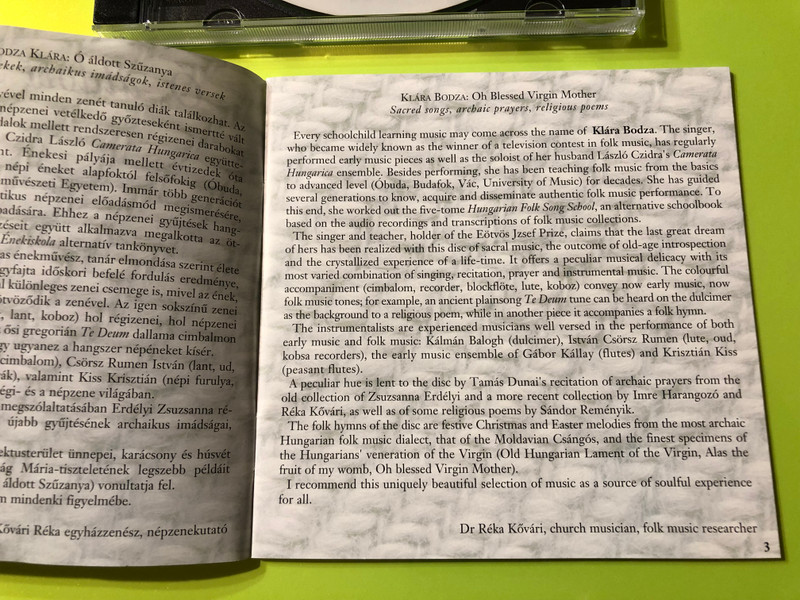 ODZA KLÁRA: Ó áldott Szűzanya
ekek, archaikus imádságok, istenes versek
ével minden zenét tanuló diák találkozhat. Az
népzenei vetélkedő győzteseként ismertté vált
dalok mellett rendszeresen régizenei darabokat
Czidra László Camerata Hungarica együtte-
nt. Énekesi pályája mellett évtizedek óta
népi éneket alapfoktól felsőfokig (Óbuda,
művészeti Egyetem). Immár több generációt
tikus népzenei előadásmód megismerésére,
adására. Ehhez a népzenei gyűjtések hang-
zéseit együtt alkalmazva megalkotta az öt-
Énekiskola alternatív tankönyvet.
as énekművész, tanár elmondása szerint élete
gyfajta időskori befelé fordulás eredménye,
ül különleges zenei csemege is, mivel az ének,
ötvöződik a zenével. Az igen sokszínű zenei
, lant, koboz) hol régizenei, hol népzenei
ősi gregorián Te Deum dallama cimbalmon
gy ugyanez a hangszer népéneket kísér.
cimbalom), Csörsz Rumen István (lant, ud,
ák), valamint Kiss Krisztián (népi furulya,
égi- és a népzene világában.
megszólaltatásában Erdélyi Zsuzsanna ré-
újabb gyűjtésének archaikus imádságai,
ektusterület ünnepei, karácsony és húsvét
ág Mária-tiszteletének legszebb példáit
áldott Szűzanya) vonultatja fel.
m mindenki figyelmébe.
Kővári Réka egyházzenész, népzenekutató
KLÁRA BODZA: Oh Blessed Virgin Mother
Sacred songs, archaic prayers, religious poems
Every schoolchild learning music may come across the name of Klára Bodza. The singer,
who became widely known as the winner of a television contest in folk music, has regularly
performed early music pieces as well as the soloist of her husband László Czidra's Camerata
Hungarica ensemble. Besides performing, she has been teaching folk music from the basics
to advanced level (Óbuda, Budafok, Vác, University of Music) for decades. She has guided
several generations to know, acquire and disseminate authentic folk music performance. To
this end, she worked out the five-tome Hungarian Folk Song School, an alternative schoolbook
based on the audio recordings and transcriptions of folk music collections.
The singer and teacher, holder of the Eötvös Jzsef Prize, claims that the last great dream
of hers has been realized with this disc of sacral music, the outcome of old-age introspection
and the crystallized experience of a life-time. It offers a peculiar musical delicacy with its
most varied combination of singing, recitation, prayer and instrumental music. The colourful
accompaniment (cimbalom, recorder, blockflöte, lute, koboz) convey now early music, now
folk music tones; for example, an ancient plainsong Te Deum tune can be heard on the dulcimer
as the background to a religious poem, while in another piece it accompanies a folk hymn.
The instrumentalists are experienced musicians well versed in the performance of both
early music and folk music: Kálmán Balogh (dulcimer), István Csörsz Rumen (lute, oud,
kobsa recorders), the early music ensemble of Gábor Kállay (flutes) and Krisztián Kiss
(peasant flutes).
A peculiar hue is lent to the disc by Tamás Dunai's recitation of archaic prayers from the
old collection of Zsuzsanna Erdélyi and a more recent collection by Imre Harangozó and
Réka Kővári, as well as of some religious poems by Sándor Reményik.
The folk hymns of the disc are festive Christmas and Easter melodies from the most archaic
Hungarian folk music dialect, that of the Moldavian Csángós, and the finest specimens of
the Hungarians' veneration of the Virgin (Old Hungarian Lament of the Virgin, Alas the
fruit of my womb, Oh blessed Virgin Mother).
I recommend this uniquely beautiful selection of music as a source of soulful experience
for all.
Dr Réka Kővári, church musician, folk music researcher
3